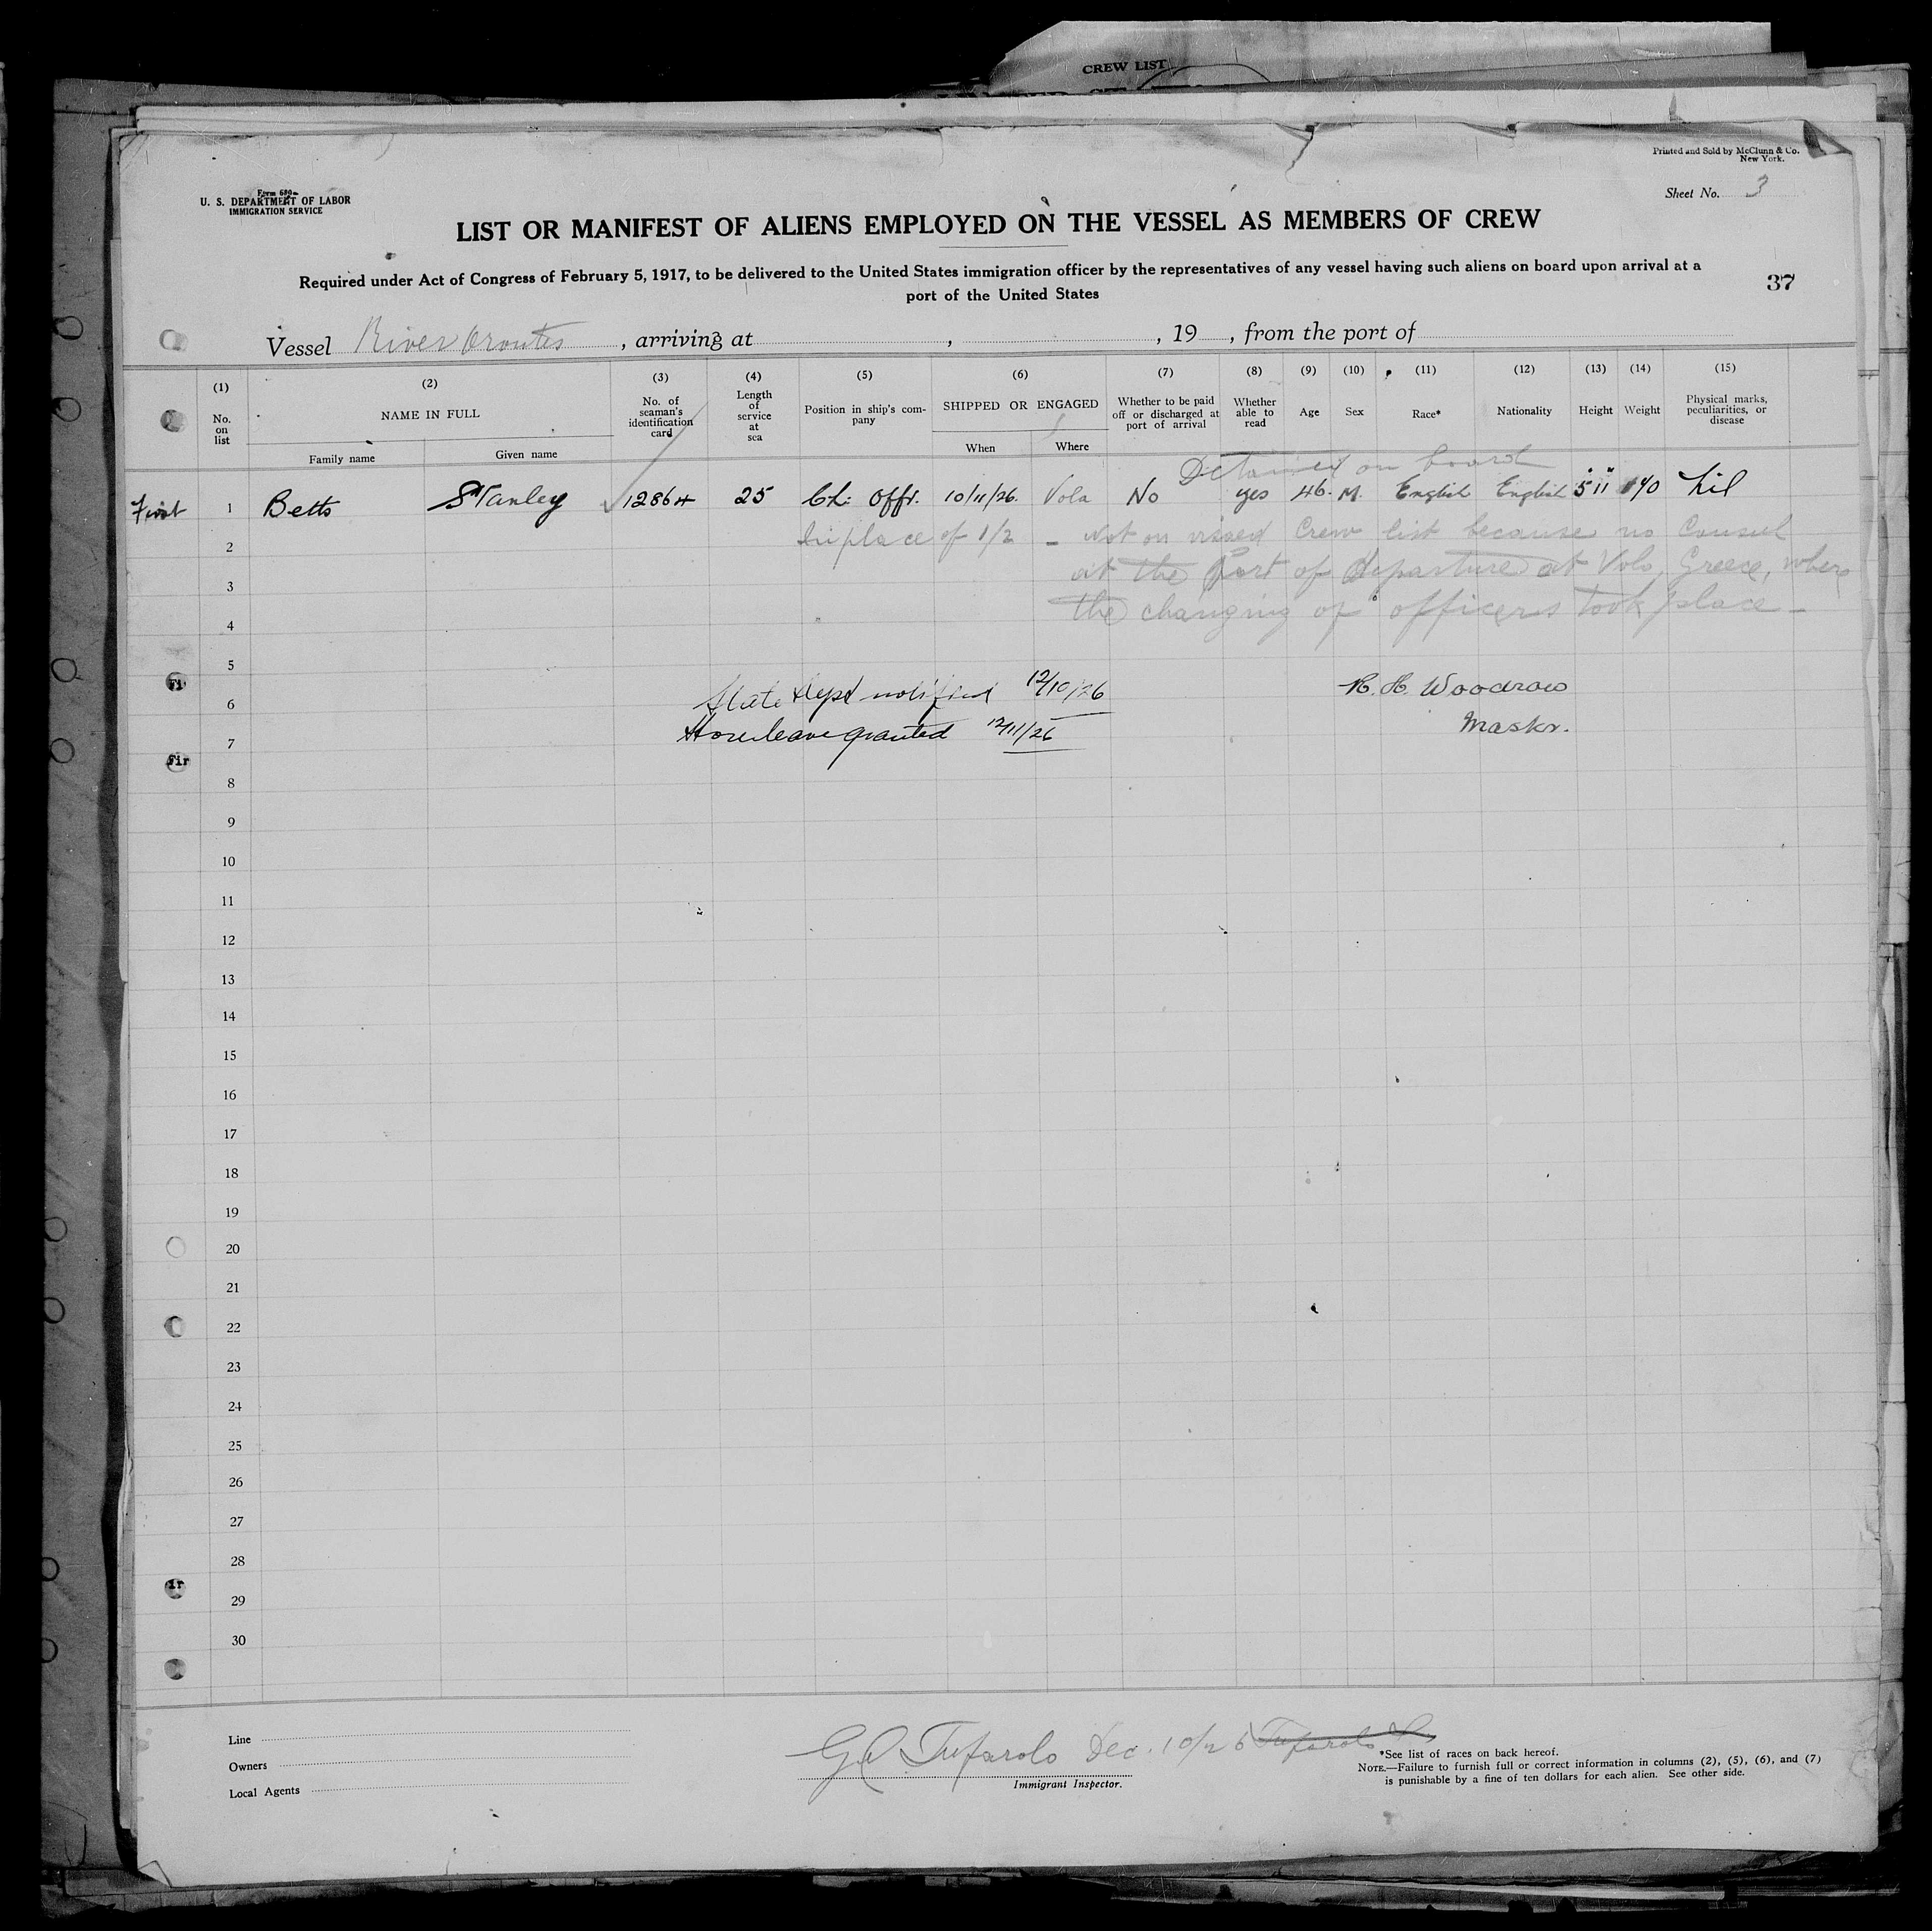 CREW LIST
Printed and Sold by McClunn & Co.
New York.
Form 680
U. S. DEPARTMENT OF LABOR
IMMIGRATION SERVICE
Sheet No. 3
LIST OR MANIFEST OF ALIENS EMPLOYED ON THE VESSEL AS MEMBERS OF CREW
Required under Act of Congress of February 5, 1917, to be delivered to the United States immigration officer by the representatives of any vessel having such aliens on board upon arrival at a
port of the United States
37
Vessel River Orontes, arriving at , , 19 , from the port of
(1) No. on list
(2) NAME IN FULL
Family name
Given name
(3) No. of seaman's identification card
(4) Length of service at sea
(5) Position in ship's company
(6) SHIPPED OR ENGAGED
When
Where
(7) Whether to be paid off or discharged at port of arrival
(8) Whether able to read
(9) Age
(10) Sex
(11) Race*
(12) Nationality
(13) Height
(14) Weight
(15) Physical marks, peculiarities, or disease
Detained on board
First 1 Betts Stanley 12864 25 Ch: Offr. 10/11/26. Vola No yes 46. M. English English 5' 11" 140 Nil
2 In place of 1/2 - Not on vissed Crew list because no Consul
3 at the Port of departure at Volo, Greece, where
4 the changing of officers took place -
5
Fi
6 State Dept notified 12/10/26 R. H. Woodrow
7 Shore leave granted 12/11/26 Master.
Fir
8
9
10
11
12
13
14
15
16
17
18
19
20
21
22
23
24
25
26
27
28
ir
29
30
Line
Owners
Local Agents
Tufarolo Dec. 10/26 Tufarolo
Immigrant Inspector.
*See list of races on back hereof.
NOTE.—Failure to furnish full or correct information in columns (2), (5), (6), and (7)
is punishable by a fine of ten dollars for each alien. See other side.